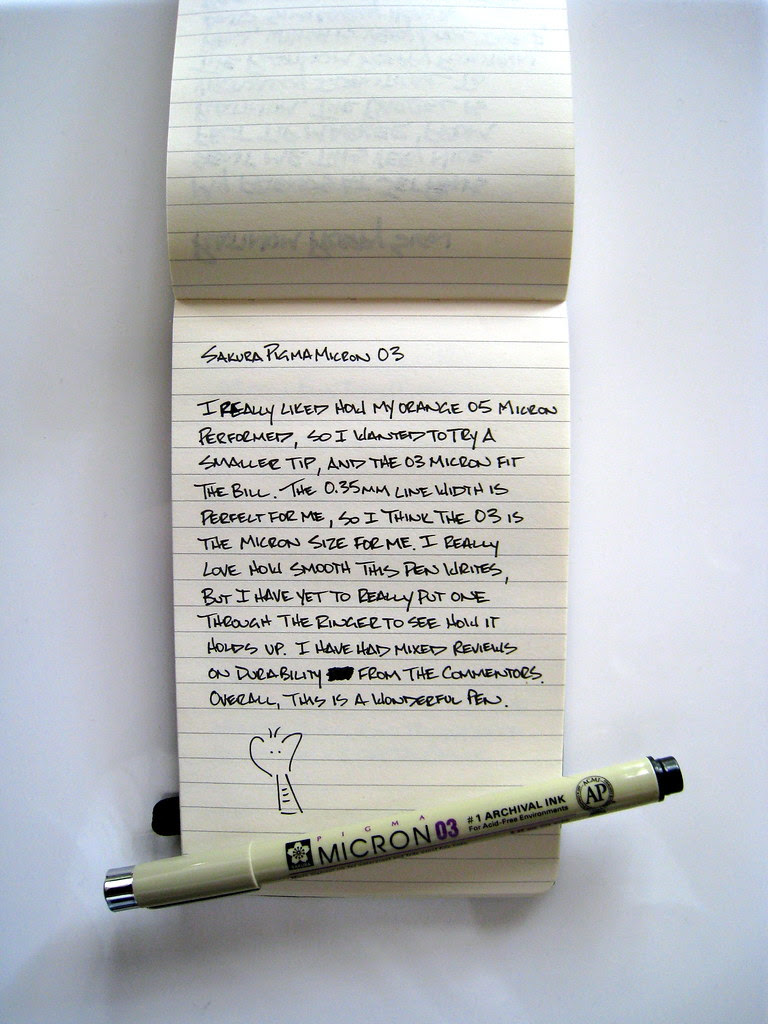 SAKURA PIGMA MICRON 03
I REALLY LIKED HOW MY ORANGE 05 MICRON
PERFORMED, SO I WANTED TO TRY A
SMALLER TIP, AND THE 03 MICRON FIT
THE BILL. THE 0.35MM LINE WIDTH IS
PERFECT FOR ME, SO I THINK THE 03 IS
THE MICRON SIZE FOR ME. I REALLY
LOVE HOW SMOOTH THIS PEN WRITES,
BUT I HAVE YET TO REALLY PUT ONE
THROUGH THE RINGER TO SEE HOW IT
HOLDS UP. I HAVE HAD MIXED REVIEWS
ON DURABILITY FROM THE COMMENTORS.
OVERALL, THIS IS A WONDERFUL PEN.
PIGMA
MICRON 03
#1 ARCHIVAL INK
For Acid-Free Environments
AP